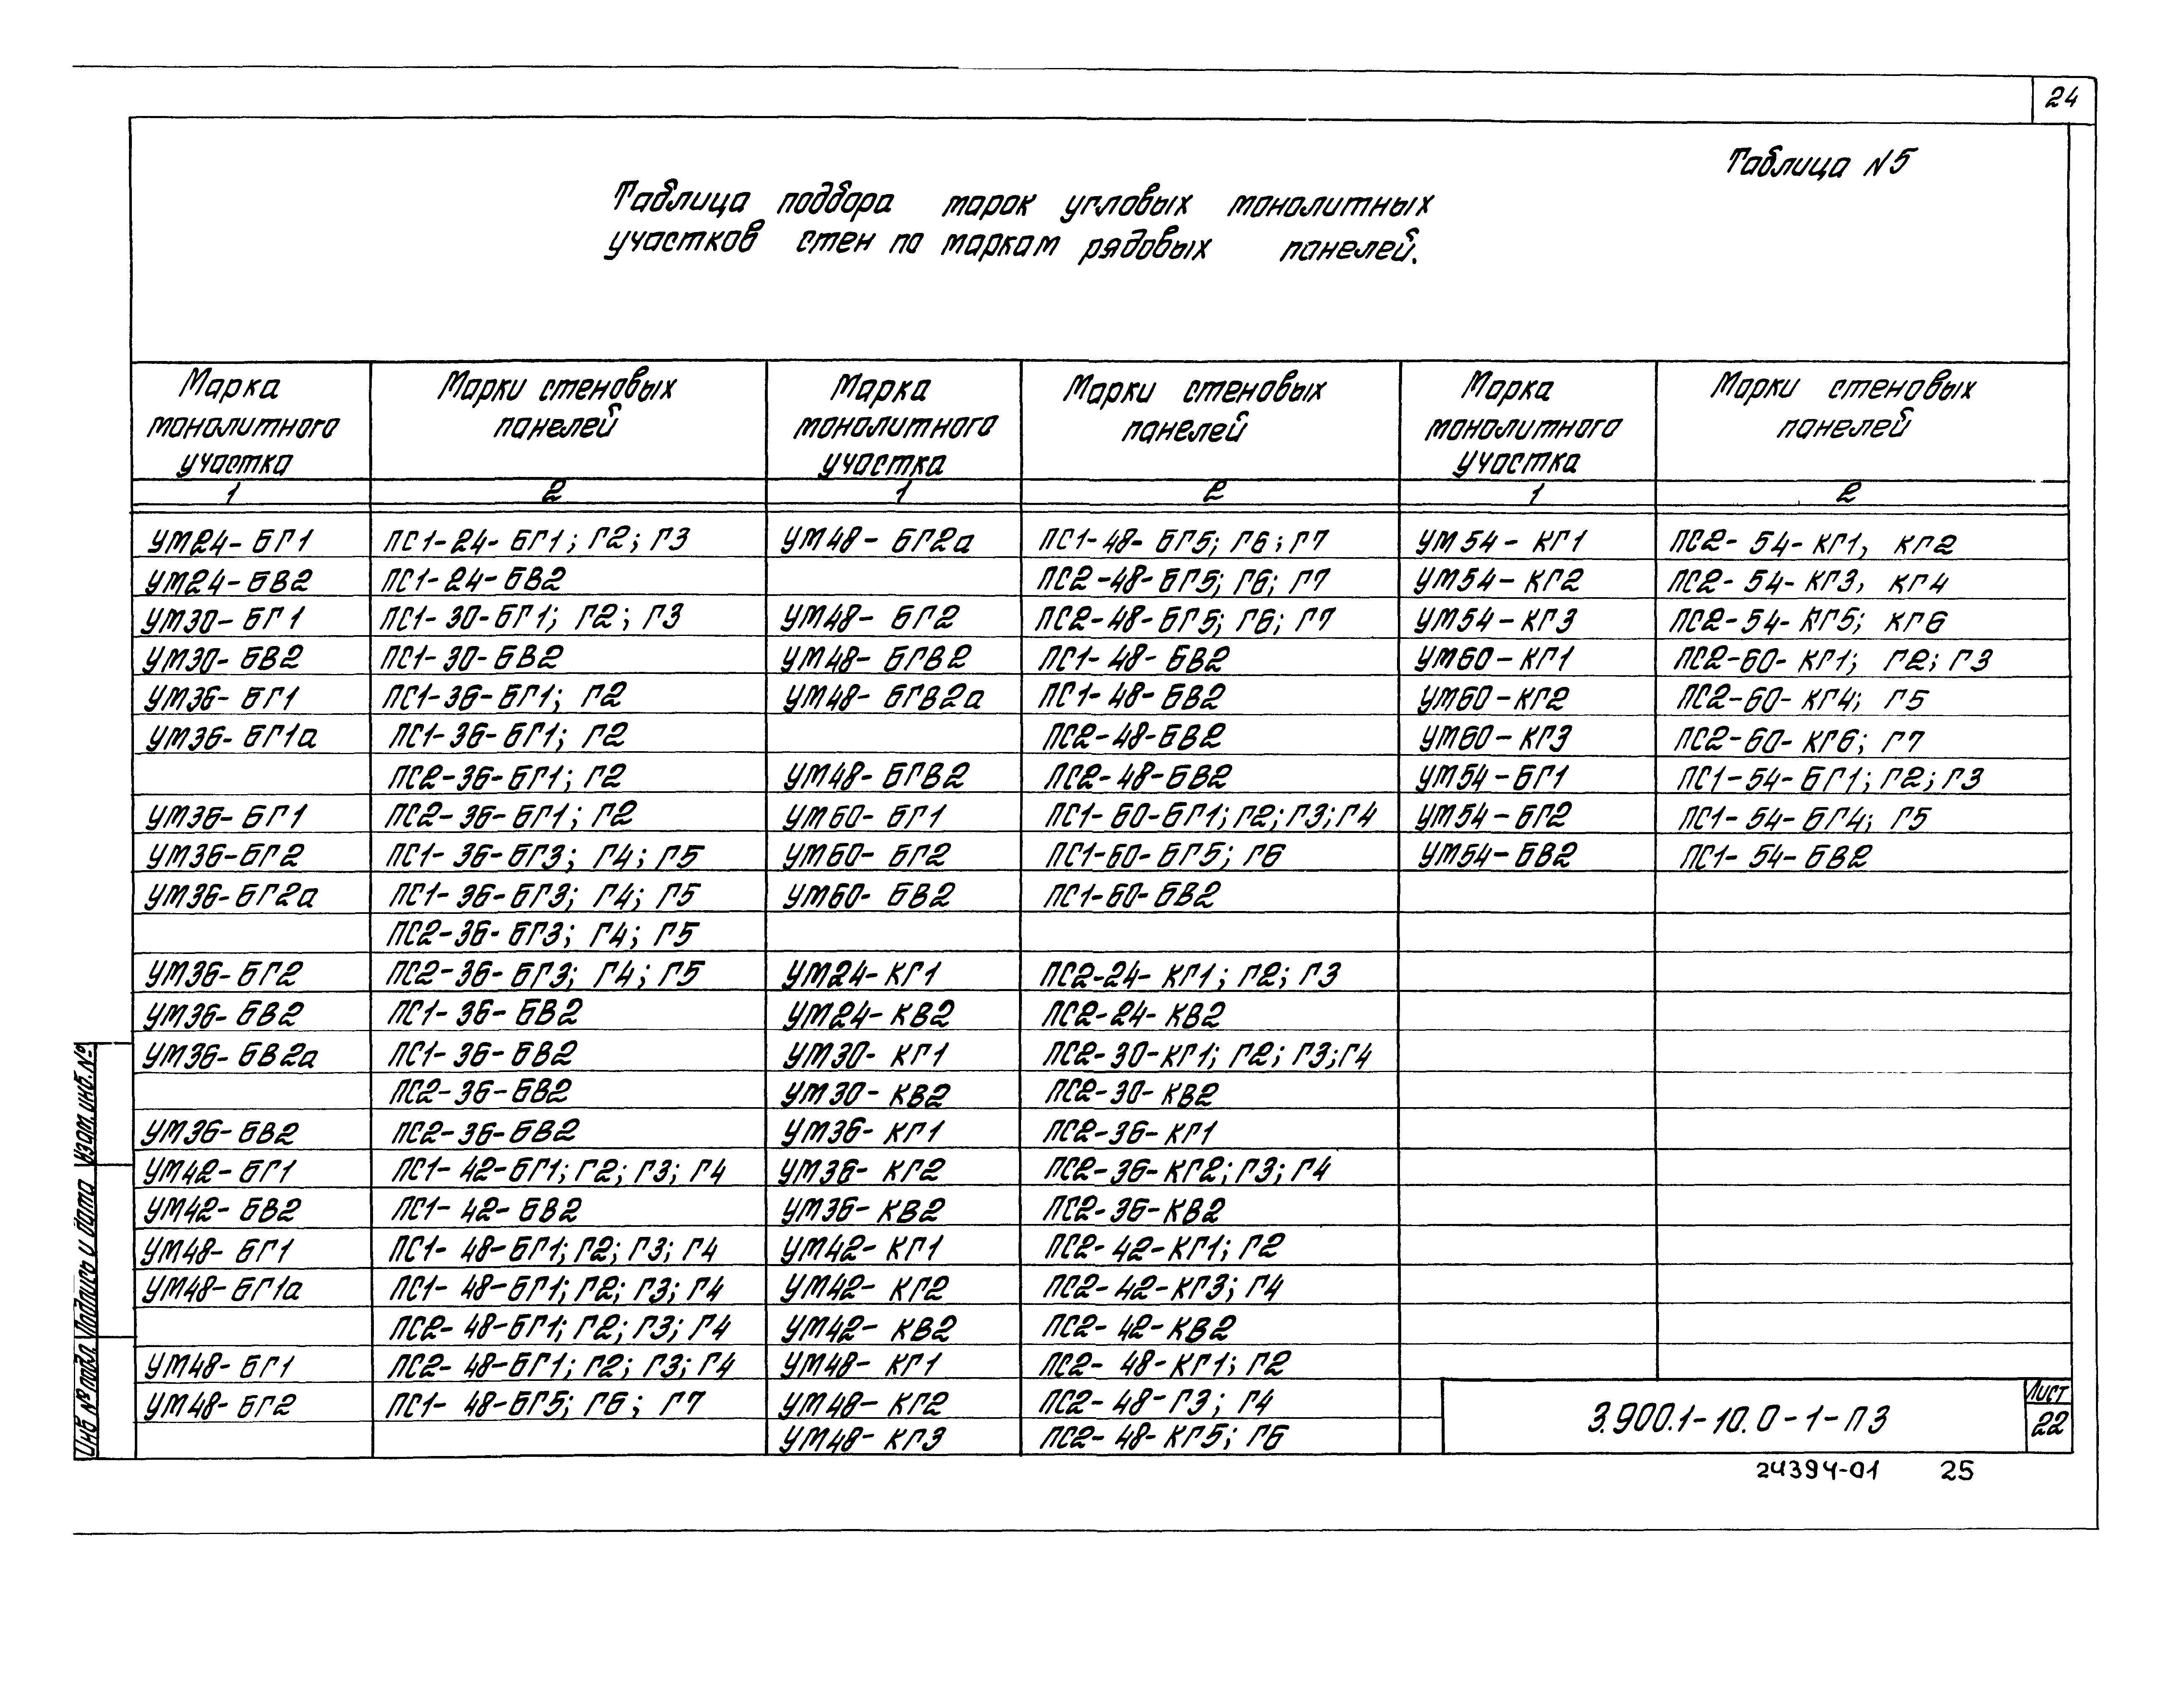 24
Таблица N5
Таблица подбора марок угловых монолитных
участков стен по маркам рядовых панелей.
Марка монолитного участка | Марки стеновых панелей | Марка монолитного участка | Марки стеновых панелей | Марка монолитного участка | Марки стеновых панелей
1 | 2 | 1 | 2 | 1 | 2
УМ24-БГ1 | ПС1-24-БГ1; Г2; Г3 | УМ48-БГ2а | ПС1-48-БГ5; Г6; Г7 | УМ54-КГ1 | ПС2-54-КГ1, КГ2
УМ24-БВ2 | ПС1-24-БВ2 | | ПС2-48-БГ5; Г6; Г7 | УМ54-КГ2 | ПС2-54-КГ3, КГ4
УМ30-БГ1 | ПС1-30-БГ1; Г2; Г3 | УМ48-БГ2 | ПС2-48-БГ5; Г6; Г7 | УМ54-КГ3 | ПС2-54-КГ5; КГ6
УМ30-БВ2 | ПС1-30-БВ2 | УМ48-БГВ2 | ПС1-48-БВ2 | УМ60-КГ1 | ПС2-60-КГ1; Г2; Г3
УМ36-БГ1 | ПС1-36-БГ1; Г2 | УМ48-БГВ2а | ПС1-48-БВ2 | УМ60-КГ2 | ПС2-60-КГ4; Г5
УМ36-БГ1а | ПС1-36-БГ1; Г2 | | ПС2-48-БВ2 | УМ60-КГ3 | ПС2-60-КГ6; Г7
| ПС2-36-БГ1; Г2 | УМ48-БГВ2 | ПС2-48-БВ2 | УМ54-БГ1 | ПС1-54-БГ1; Г2; Г3
УМ36-БГ1 | ПС2-36-БГ1; Г2 | УМ60-БГ1 | ПС1-60-БГ1; Г2; Г3; Г4 | УМ54-БГ2 | ПС1-54-БГ4; Г5
УМ36-БГ2 | ПС1-36-БГ3; Г4; Г5 | УМ60-БГ2 | ПС1-60-БГ5; Г6 | УМ54-БВ2 | ПС1-54-БВ2
УМ36-БГ2а | ПС1-36-БГ3; Г4; Г5 | УМ60-БВ2 | ПС1-60-БВ2
| ПС2-36-БГ3; Г4; Г5
УМ36-БГ2 | ПС2-36-БГ3; Г4; Г5 | УМ24-КГ1 | ПС2-24-КГ1; Г2; Г3
УМ36-БВ2 | ПС1-36-БВ2 | УМ24-КВ2 | ПС2-24-КВ2
УМ36-БВ2а | ПС1-36-БВ2 | УМ30-КГ1 | ПС2-30-КГ1; Г2; Г3; Г4
| ПС2-36-БВ2 | УМ30-КВ2 | ПС2-30-КВ2
УМ36-БВ2 | ПС2-36-БВ2 | УМ36-КГ1 | ПС2-36-КГ1
УМ42-БГ1 | ПС1-42-БГ1; Г2; Г3; Г4 | УМ36-КГ2 | ПС2-36-КГ2; Г3; Г4
УМ42-БВ2 | ПС1-42-БВ2 | УМ36-КВ2 | ПС2-36-КВ2
УМ48-БГ1 | ПС1-48-БГ1; Г2; Г3; Г4 | УМ42-КГ1 | ПС2-42-КГ1; Г2
УМ48-БГ1а | ПС1-48-БГ1; Г2; Г3; Г4 | УМ42-КГ2 | ПС2-42-КГ3; Г4
| ПС2-48-БГ1; Г2; Г3; Г4 | УМ42-КВ2 | ПС2-42-КВ2
УМ48-БГ1 | ПС2-48-БГ1; Г2; Г3; Г4 | УМ48-КГ1 | ПС2-48-КГ1; Г2
УМ48-БГ2 | ПС1-48-БГ5; Г6; Г7 | УМ48-КГ2 | ПС2-48-Г3; Г4
| | УМ48-КГ3 | ПС2-48-КГ5; Г6
Взам. инв. №
Подпись и дата
Инв № подл.
3.900.1-10.0-1-ПЗ
Лист
22
24394-01 25